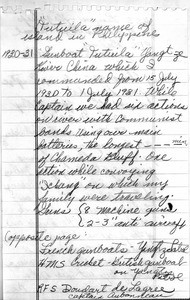 "Tutuila" name of
island in Philippines
1930-31 Gunboat "Tutuila" Yangtze
River China which I
commanded from 15 July
1930 to 1 July 1931. While
Captain we had six actions
on river with Communist
bands using our main
batteries, the longest
of Chameda Bluff. One
action while convoying
"Ichang" on which my
family were traveling.
Guns { 8 machine guns
2-3" anti aircraft
(opposite page:
French gunboats -
HMS Cricket - British gunboat
on
RFS Doudart de Lagree
captain